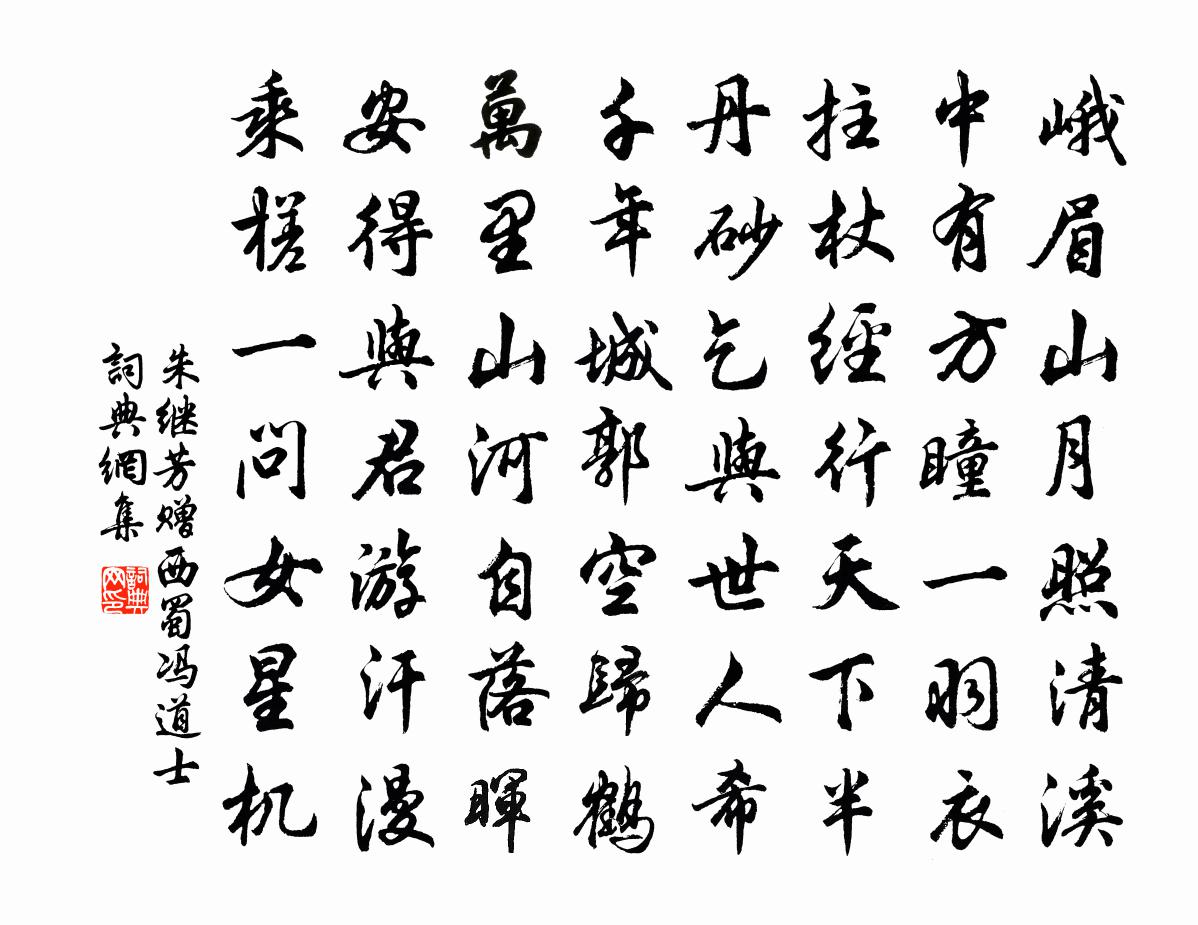 峨眉山月照清溪
中有方瞳一羽衣
拄杖經行天下半
丹砂乞與世人希
千年城郭空歸鶴
萬里山河自落暉
安得與君游汗漫
乘槎一問女星机
朱继芳赠西蜀冯道士
詞典網集
詞典
网印